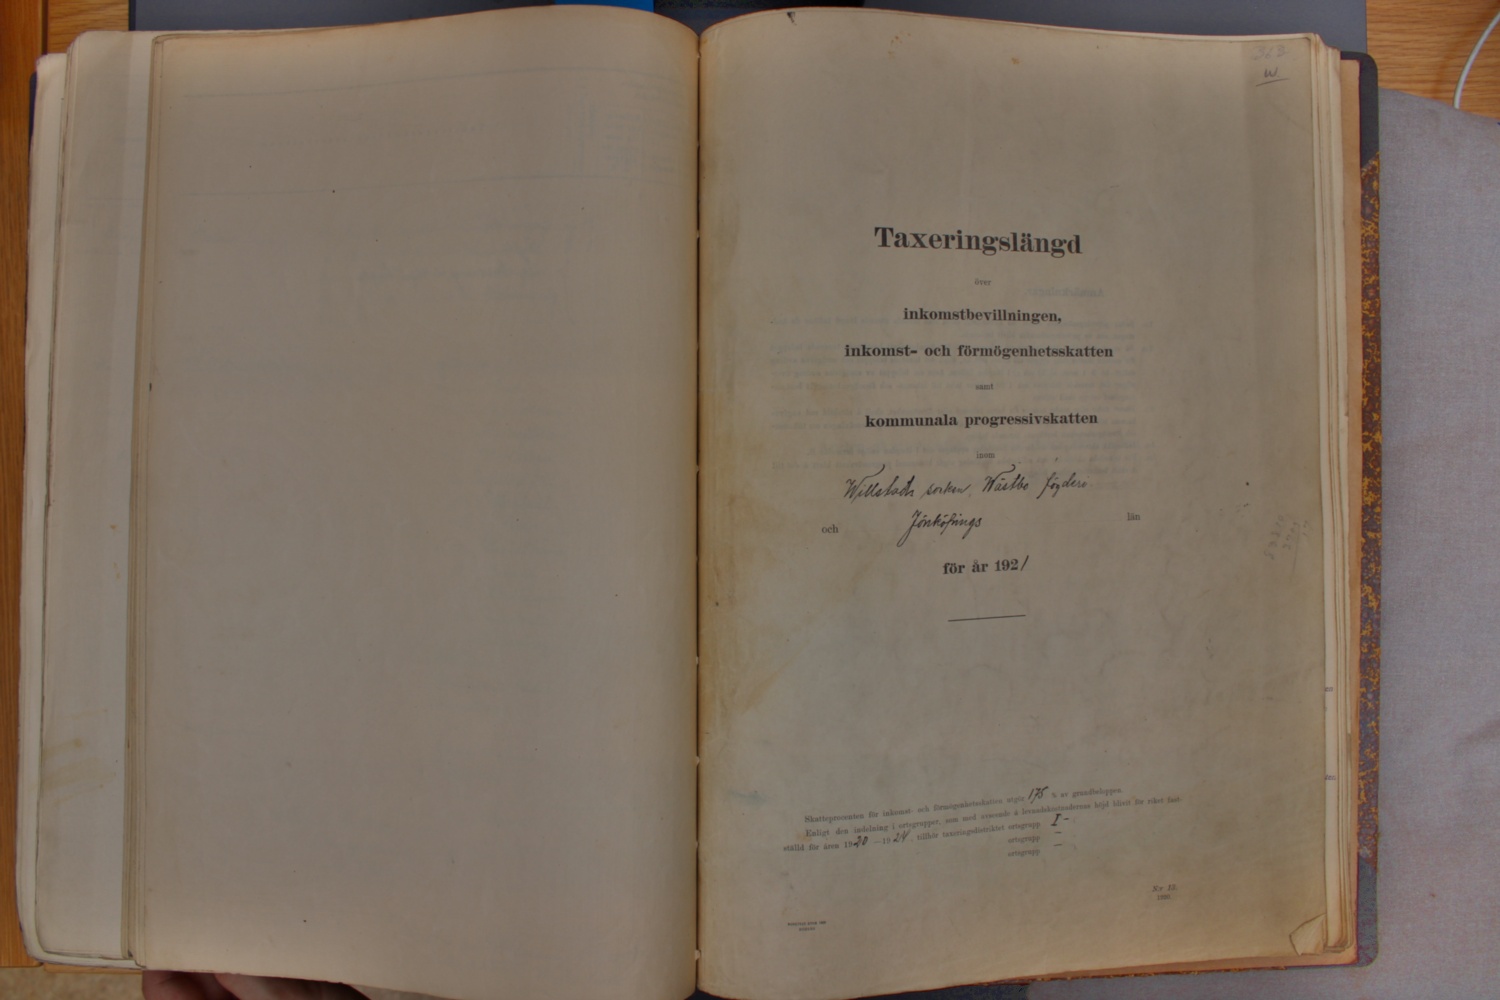 W
Taxeringslängd
över
inkomstbevillningen,
inkomst- och förmögenhetsskatten
samt
kommunala progressivskatten
inom
Willstads socken, Wästbo fögderi
och Jönköpings län
för år 1921
Skatteprocenten för inkomst- och förmögenhetsskatten utgör 175 % av grundbeloppen.
Enligt den indelning i ortsgrupper, som med avseende å levnadskostnadernas höjd blivit för riket fast-
ställd för åren 1920—1924, tillhör taxeringsdistriktet ortsgrupp I –
ortsgrupp –
ortsgrupp –
Nr 12.
1920.